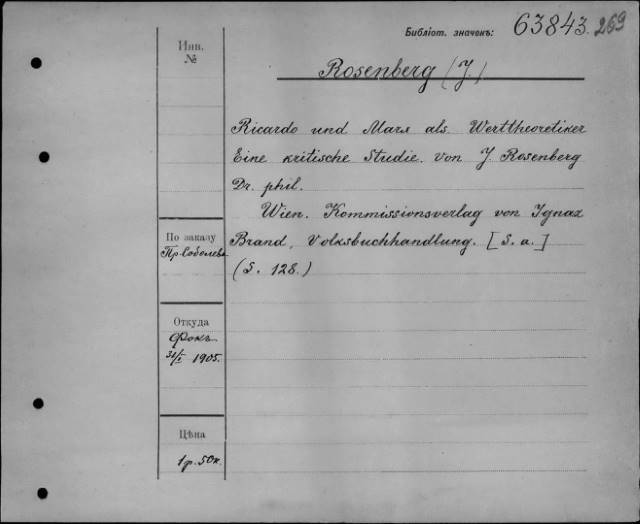 Библіот. значекъ: 63843. 269
Инв.
№
Rosenberg (J.)
Ricardo und Marx als Werttheoretiker
Eine kritische Studie. von J. Rosenberg
Dr. phil.
Wien. Kommissionsverlag von Ignaz
Brand, Volksbuchhandlung. [S. a.]
(S. 128.)
По заказу
Пр. Соболева
Откуда
Фокъ
31/I 1905.
Цѣна
1 р. 50 к.